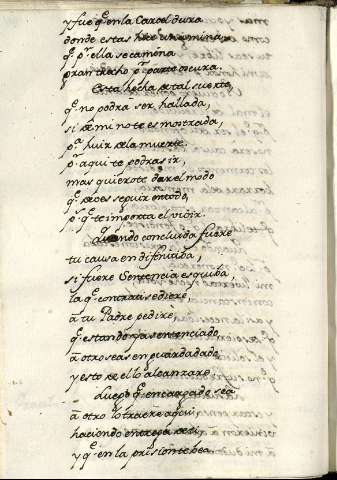 y fue q̃. en la Carcel dura
donde estas hize una mina
q̃. pr. ella se camina
gran trecho pr. parte oscura.
Esta hecha de tal suerte,
q̃. no podra ser hallada,
si de mi no te es mostrada,
pa. huir de la muerte.
pr. aqui te podras ir,
mas quierote dar el modo
q̃. deves seguir en todo,
pr. q̃. te importa el vivir.
Quando concluida fuere
tu causa en difinitiva,
si fuere Sentencia esquiba
la q̃. contra ti se diere,
a tu Padre pedire,
q̃. estando ya sentenciado,
a otro seas en guarda dado
y esto de ello alcanzare.
Luego q̃. encargado sea
a otro lo traere aqui
haciendo entrega de ti
y q̃. en la prision te vea.